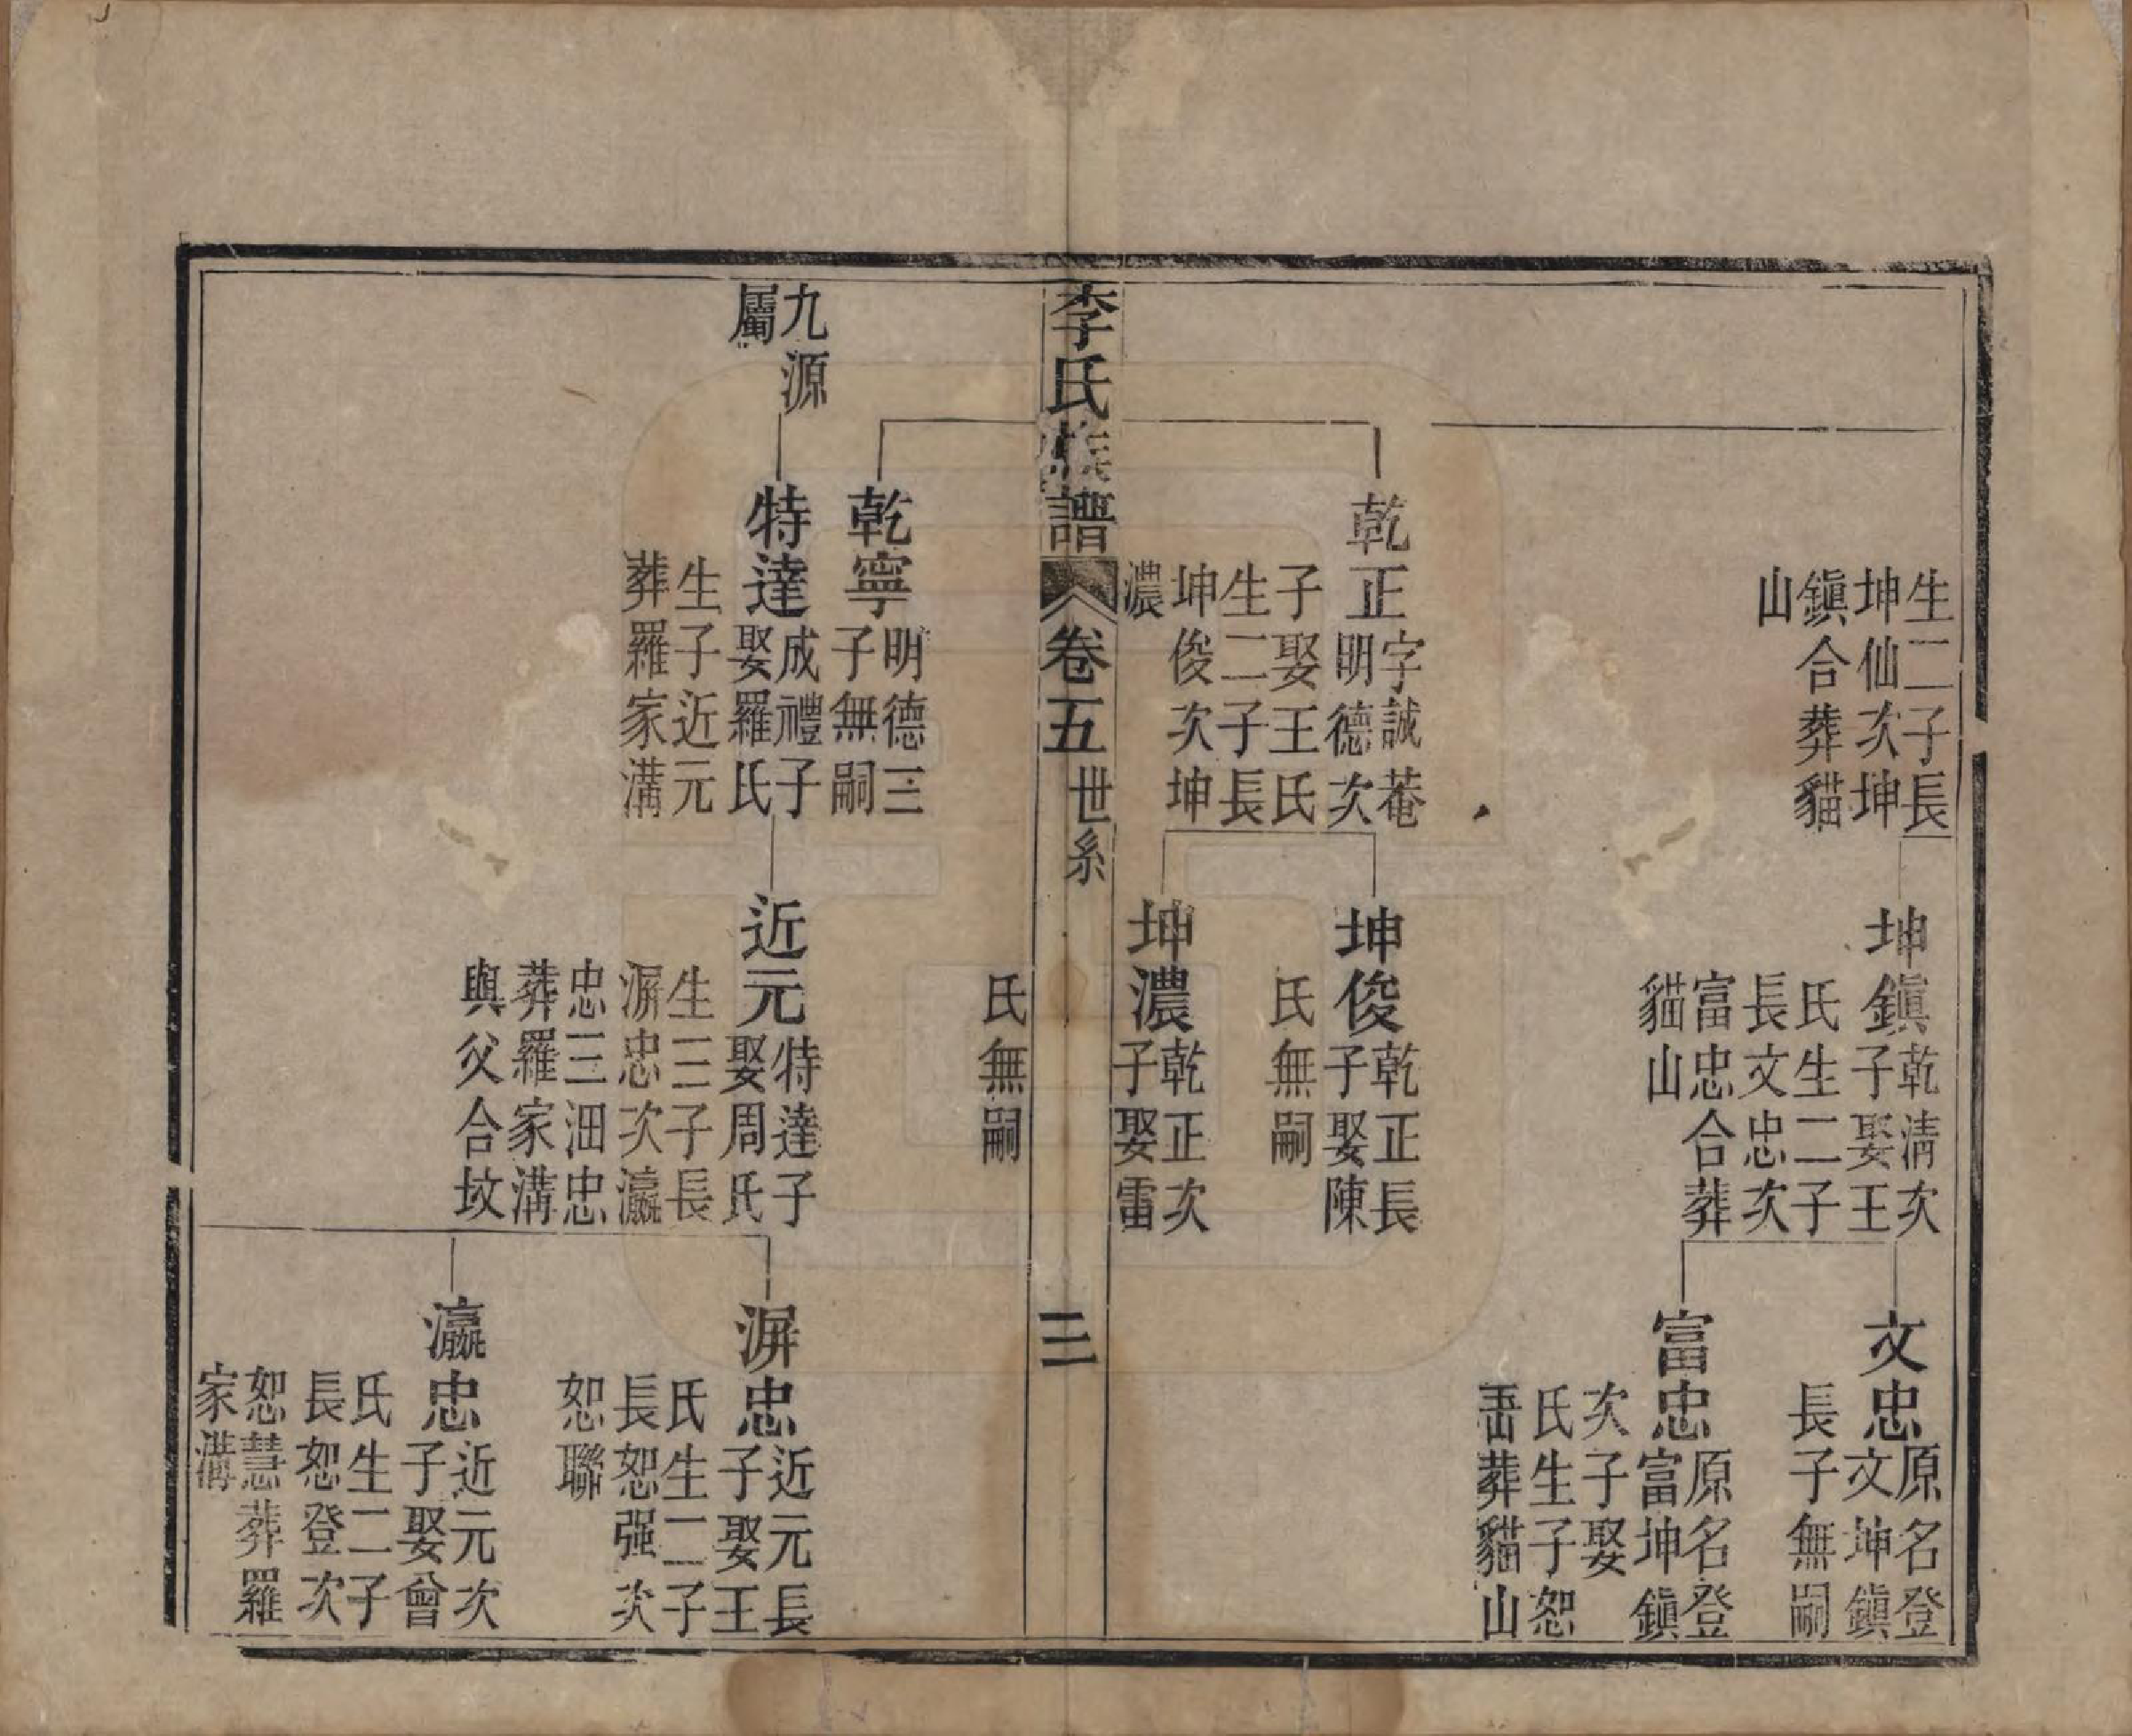 生二子長
坤仙次坤
鎭合葬貓
山
坤鎭
乾淸次
子娶王
氏生二子
長文忠次
富忠合葬
貓山
文忠
原名登
文坤鎭
長子無嗣
富忠
原名登
富坤鎭
次子娶
氏生子恕
葬貓山
乾正
字誠菴
明德次
子娶王氏
生二子長
坤俊次坤
濃
坤俊
乾正長
子娶陳
氏無嗣
坤濃
乾正次
子娶雷
李氏族譜
卷五
世系
三
氏無嗣
乾寧
明德三
子無嗣
九源
屬
特達
成禮子
娶羅氏
生子近元
葬羅家溝
近元
特達子
娶周氏
生三子長
漍忠次瀛
忠三沺忠
葬羅家溝
與父合坟
忠
近元長
子娶王
氏生二子
長恕强次
恕聯
瀛忠
近元次
子娶曾
氏生二子
長恕登次
恕慧葬羅
家溝